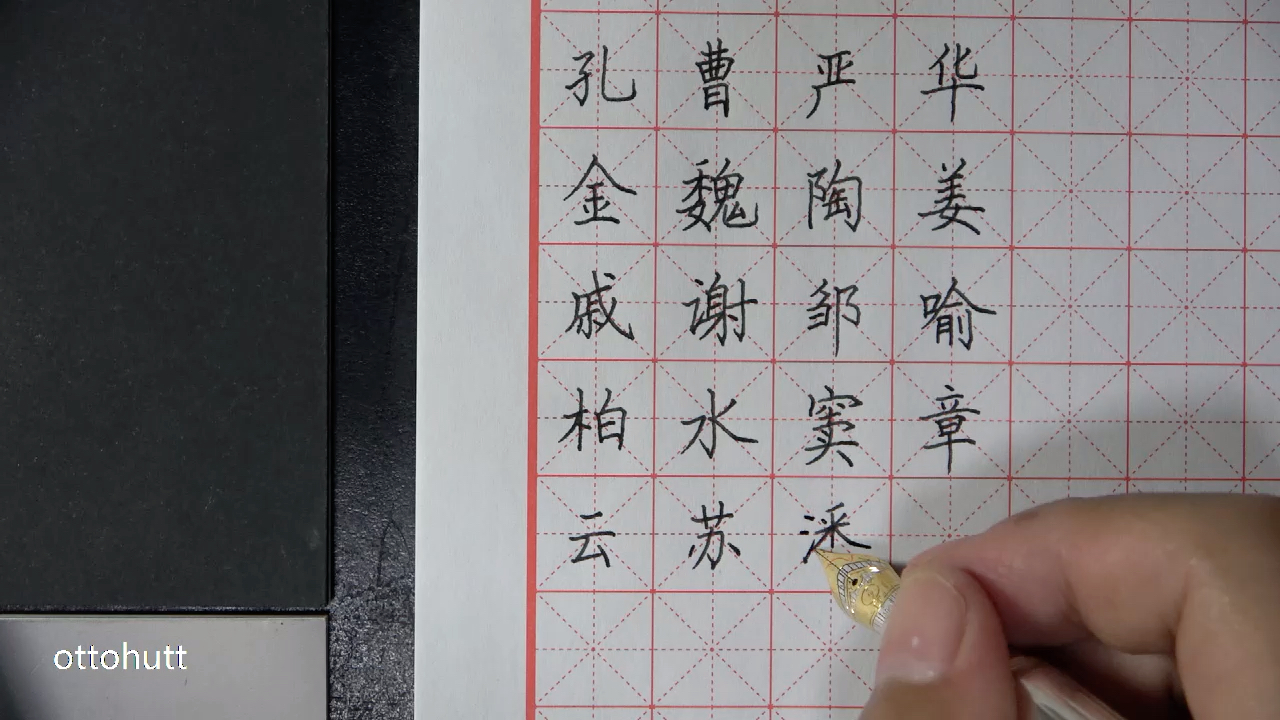 孔曹严华
金魏陶姜
戚谢邹喻
柏水窦章
云苏
ottohutt